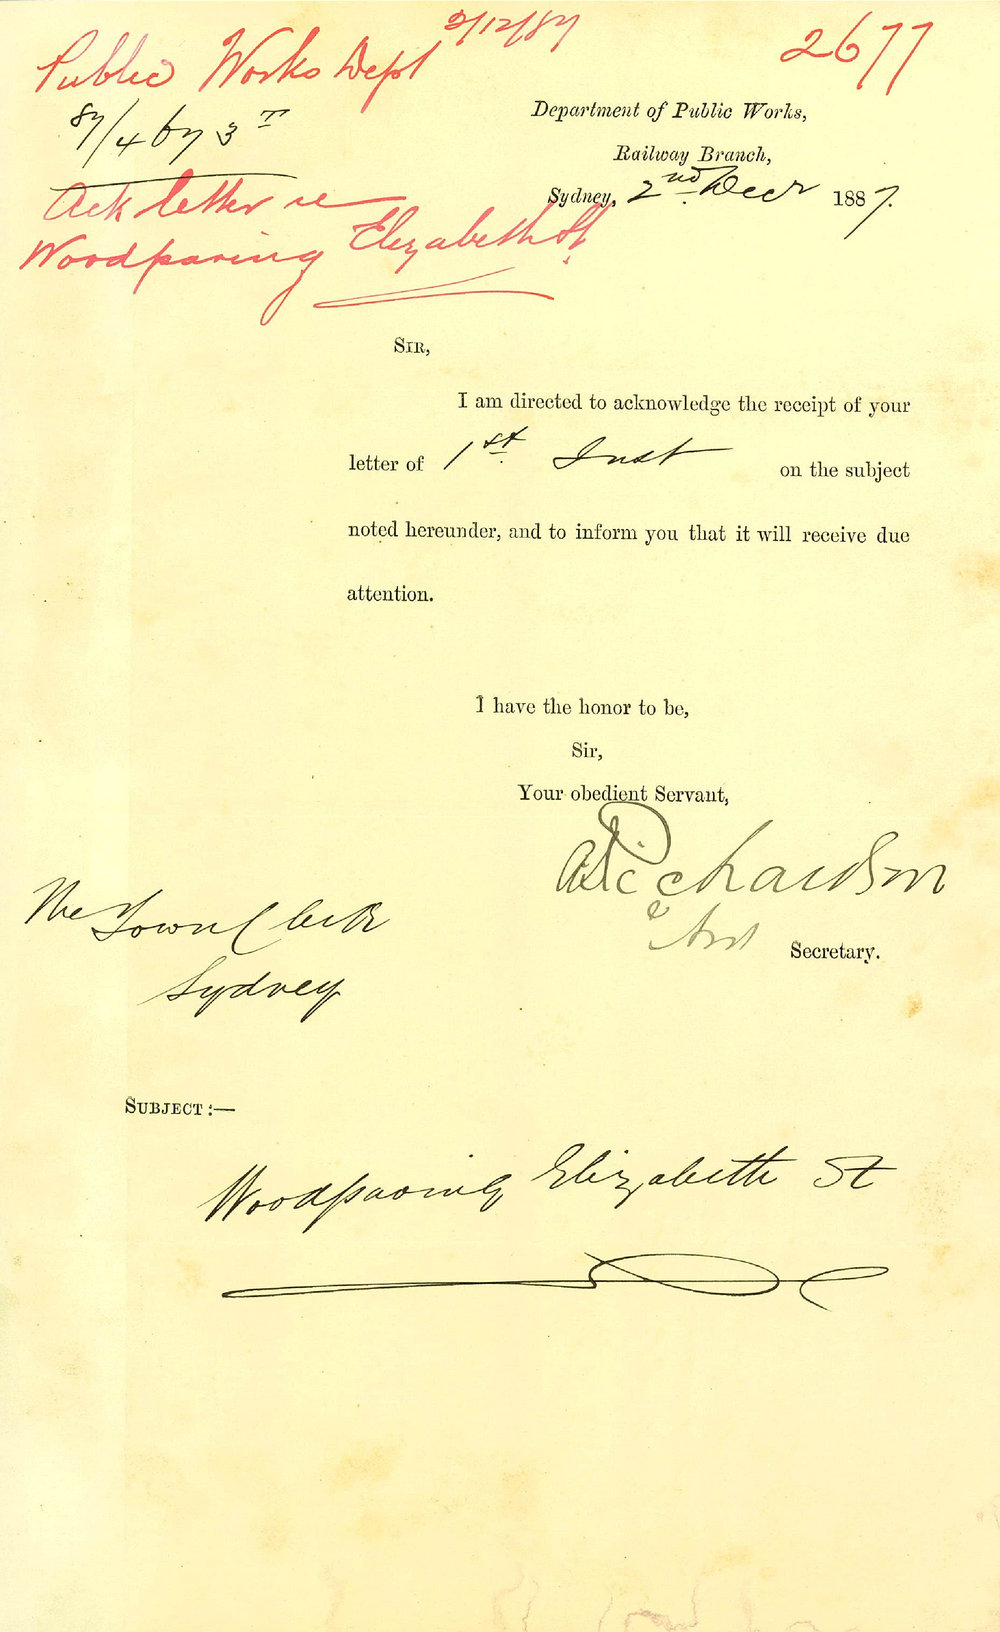 Public Works Dept 2/12/87
2677
87/4673 T
Ack letter re
Woodpaving Elizabeth St.
Department of Public Works,
Railway Branch,
Sydney, 2nd Decr 1887.
SIR,
I am directed to acknowledge the receipt of your
letter of 1st. Inst on the subject
noted hereunder, and to inform you that it will receive due
attention.
I have the honor to be,
Sir,
Your obedient Servant,
A Richardson
Secretary.
The Town Clerk
Sydney
SUBJECT:—
Woodpaving Elizabeth St